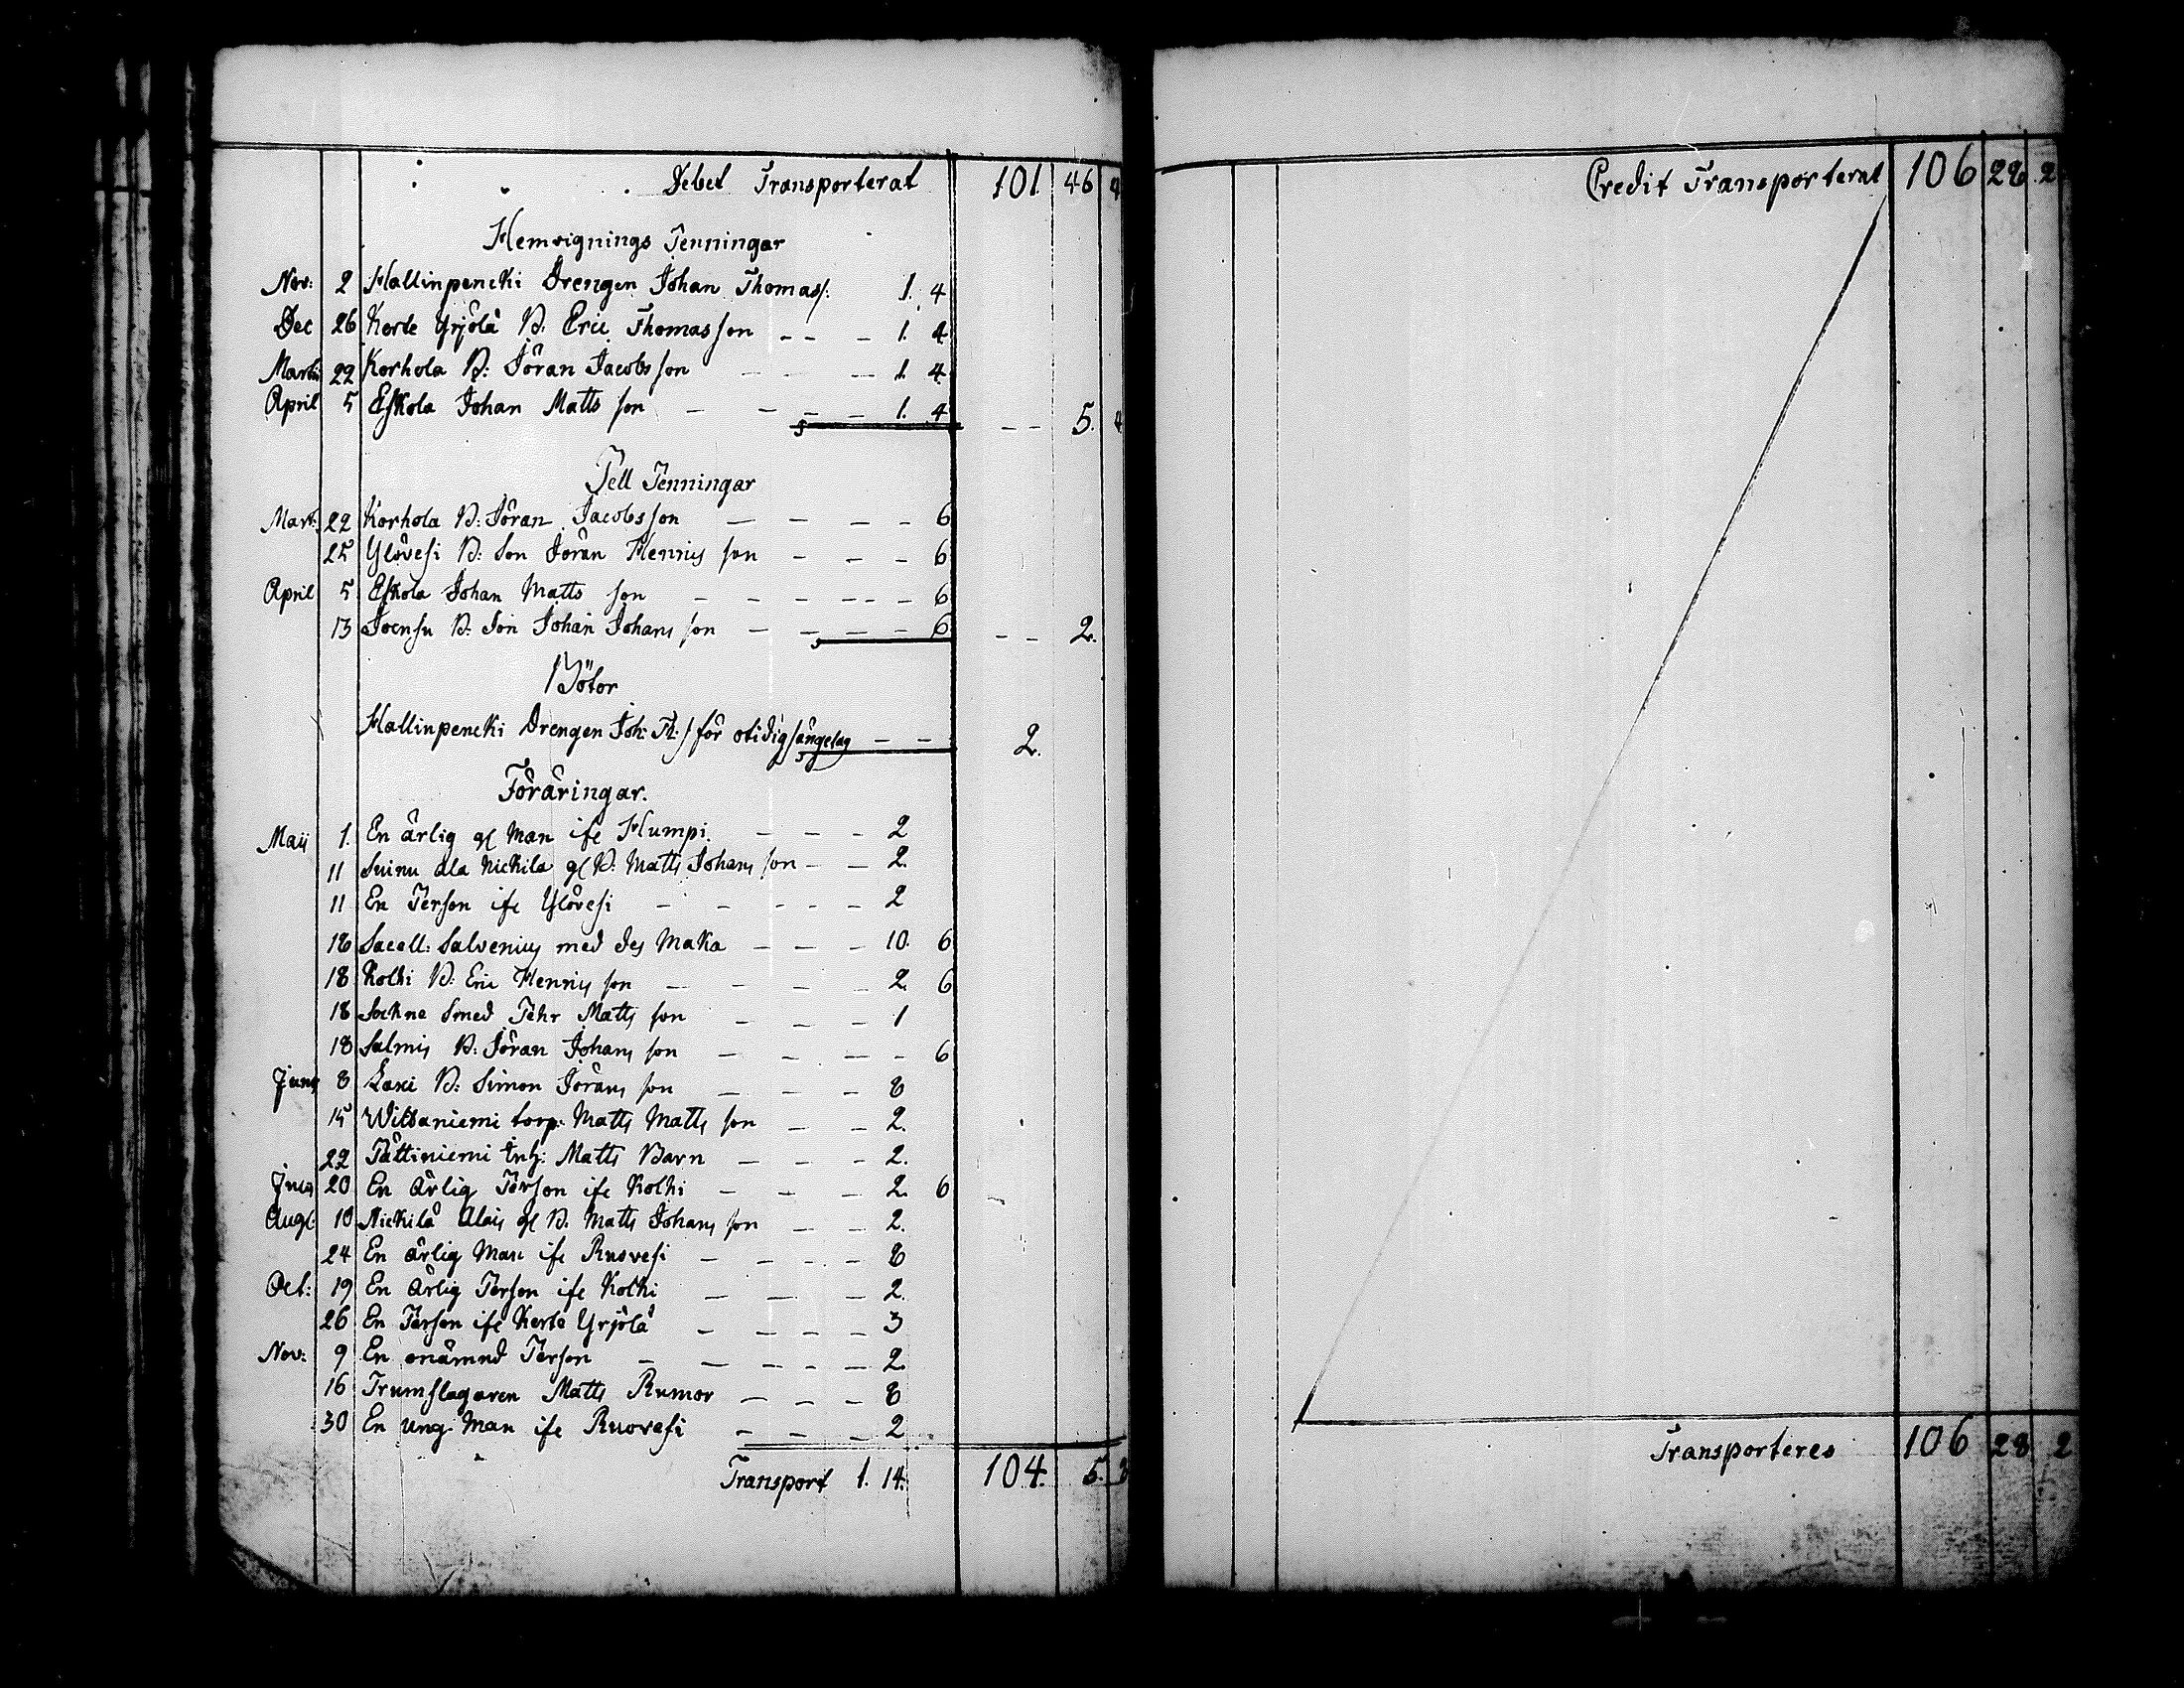 Debet Transporterat 101 46 4
Hemvignings Penningar
Nov: 2 Hallinpencki Drengen Johan Thomas/: 1. 4
Dec 26 Kerte Yrjölä B: Eric Thomasson 1. 4
Martii 22 Korhola B: Jöran Jacobsson 1. 4
April 5 Eskola Johan Matts son 1. 4 -- 5. 4
Tell Penningar
Mart: 22 Korhola B: Jöran Jacobsson 6
25 Ylövesi B: Son Jöran Henrics son 6
April 5 Eskola Johan Matts son 6
13 Joensu B: Son Johan Johans son 6 -- 2.
Böter
Hallinpencki Drengen Joh: Th:s för otidig sängelag 2.
Föräringar.
Maii 1. En ärlig gl Man ifr Humpi. 2
11 Suinu ala Nickila gl B: Matts Johans son 2.
11 En Person ifr Ylövesi 2
18 Sacell: Salvenius med des Maka 10. 6
18 Kolki B: Eric Henrics son 2. 6
18 Sockne Smed Pehr Matts son 1
18 Salmis B: Jöran Johans son 6
Junii 8 Laxi B: Simon Jörans son 8
15 Witsaniemi torp: Matts Matts son 2.
22 Pättiniemi Inh: Matts Barn 2.
Julii 20 En ärlig Person ifr Kolki 2. 6
Aug: 10 Nickilä Alais gl B. Matts Johans son 2.
24 En ärlig Man ifr Ruovesi 8
Oct: 19 En ärlig Person ifr Kolki 2.
26 En Person ifr Kerte Yrjölä 3
Nov: 9 En onämnd Person 2.
16 Trumslagaren Matts Rumor 8
30 En ung Man ifr Ruovesi 2
Transport 1. 14. 104. 5.
Credit Transporterat 106 28 2
Transporteres 106 28 2